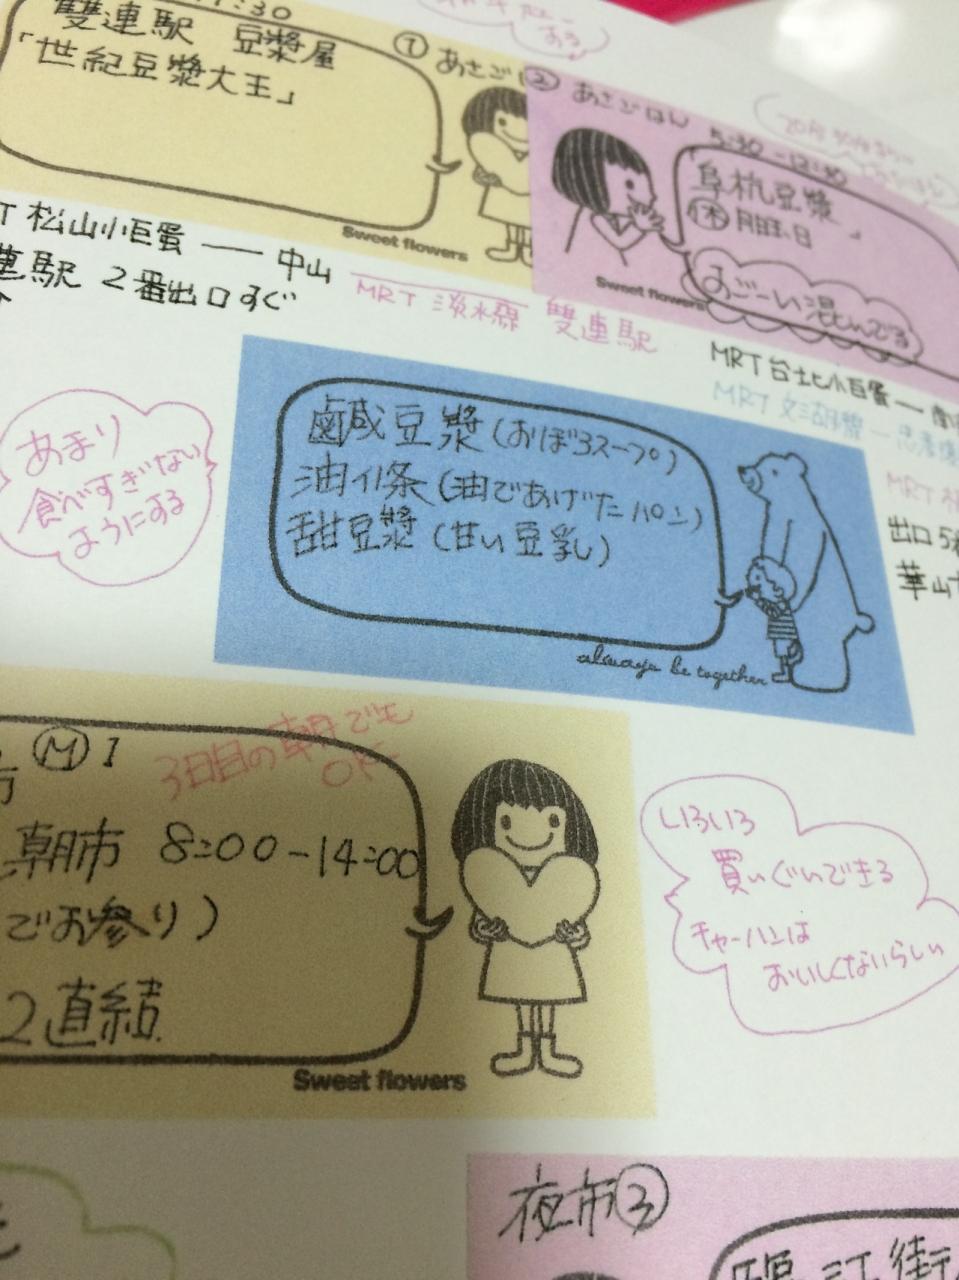 :30
雙連駅 豆漿屋
「世紀豆漿大王」
① あさご
Sweet flowers
② あさごはん 5:30-12:30
阜杭豆漿
休 月曜日
すごーい混んでる
Sweet flowers
T 松山小巨蛋 — 中山
連駅 2番出口すぐ
MRT 淡水線 雙連駅
MRT 台北小巨蛋 —
MRT 文湖線 — 忠孝復
MRT
出口5
華山
あまり
食べすぎない
ようにする
鹵咸豆漿(おぼろスープ)
油イ条(油であげたパン)
甜豆漿(甘い豆乳)
always be together
Ⓜ I
3日目の朝でも
OK
朝市 8:00-14:00
でお参り)
2直結
Sweet flowers
いろいろ
買いぐいできる
チャーハンは
おいしくないらしい
夜市③
臨江街